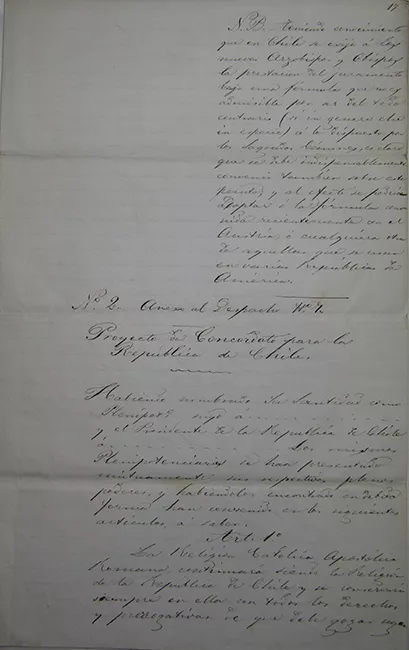 17
N.B. Teniendo conocimiento
que en Chile se exije á los
nuevos Arzobispos y Obispos
la prestacion del juramento
bajo una fórmula que no es
admisible por ser del todo
contraria
á lo dispuesto por
los Sagrados Cánones, es claro
que se debe indispensablemente
convenir tambien sobre este
punto; y al efecto se podria
adoptar ó la fórmula
recientemente en el
Austria, ó cualquiera otra
de aquellas que se usan
en varias Repúblicas de
América.
Nº 2. Anexo al Despacho Nº
Proyecto de Concordato para la
República de Chile.
Habiendo nombrado Su Santidad como
Plenipotº suyo á
y el Presidente de la República de Chile
á Los mismos
Plenipotenciarios se han presentado
mutuamente sus respectivos plenos
poderes, y habiéndolos encontrado en debida
forma han convenido en los siguientes
artículos, á saber.
Art. 1º
La Religion Católica Apostólica
Romana continuará siendo la Religion
de la República de Chile y se conservará
siempre en ella con todos los derechos
y prerrogativas de que debe gozar segun